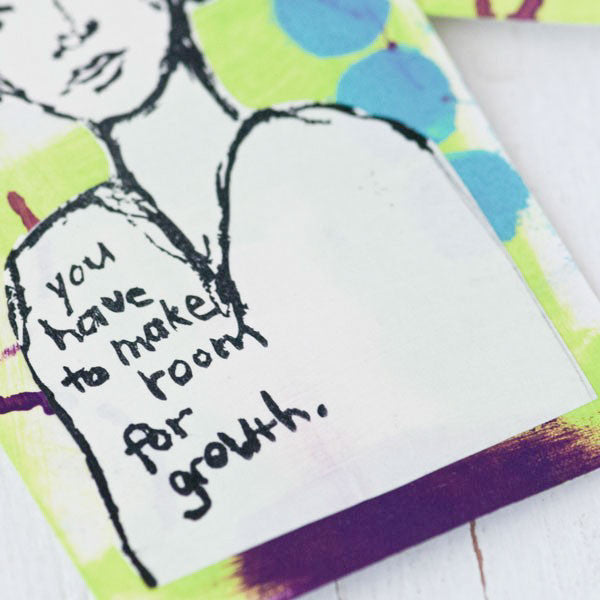 you
have
to make
room
for
growth.